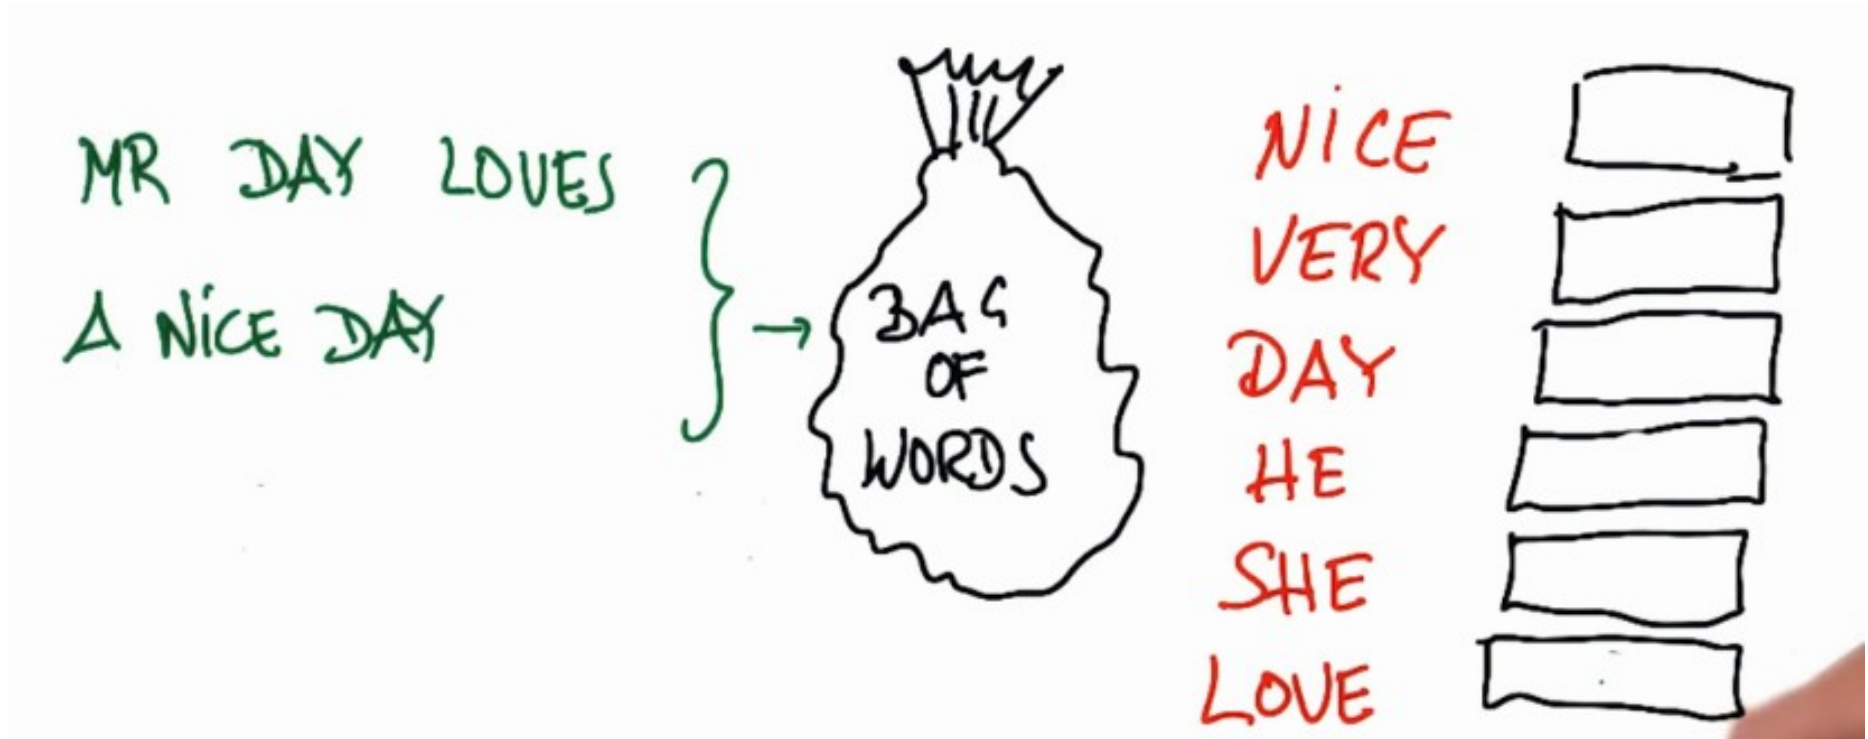 MR DAY LOVES
A NICE DAY
BAG
OF
WORDS
NICE
VERY
DAY
HE
SHE
LOVE